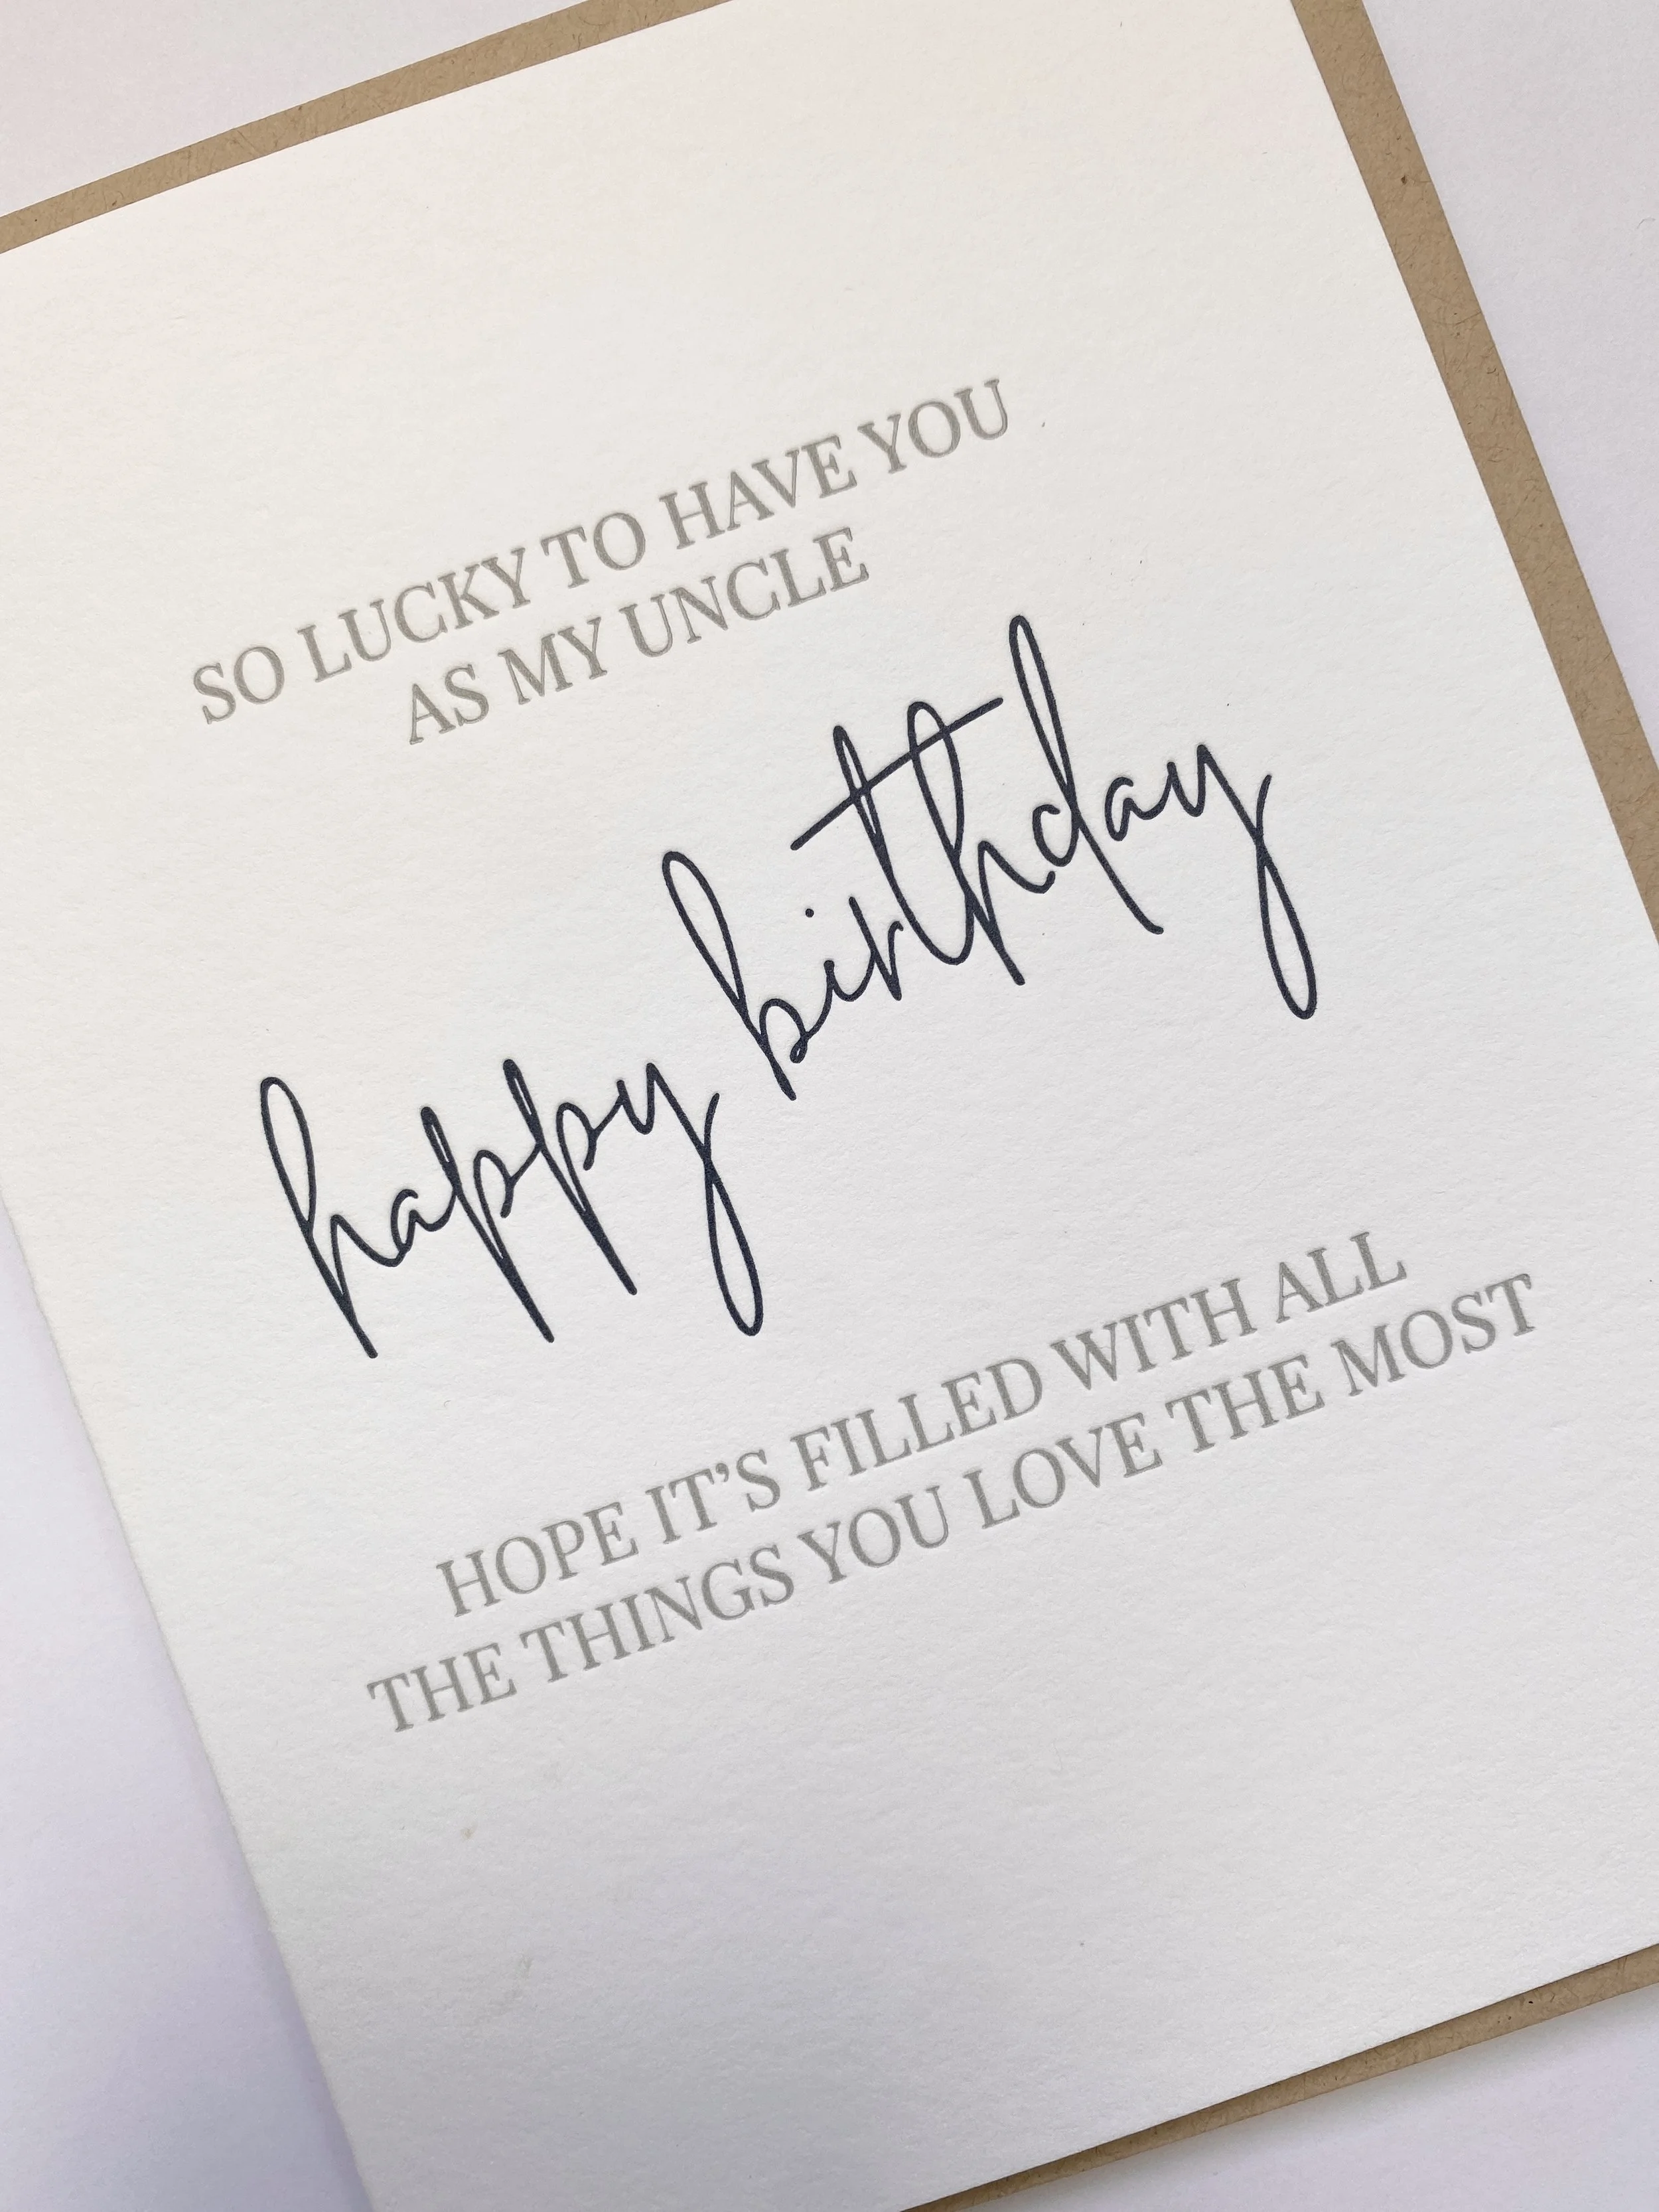 SO LUCKY TO HAVE YOU
AS MY UNCLE
happy birthday
HOPE IT'S FILLED WITH ALL
THE THINGS YOU LOVE THE MOST